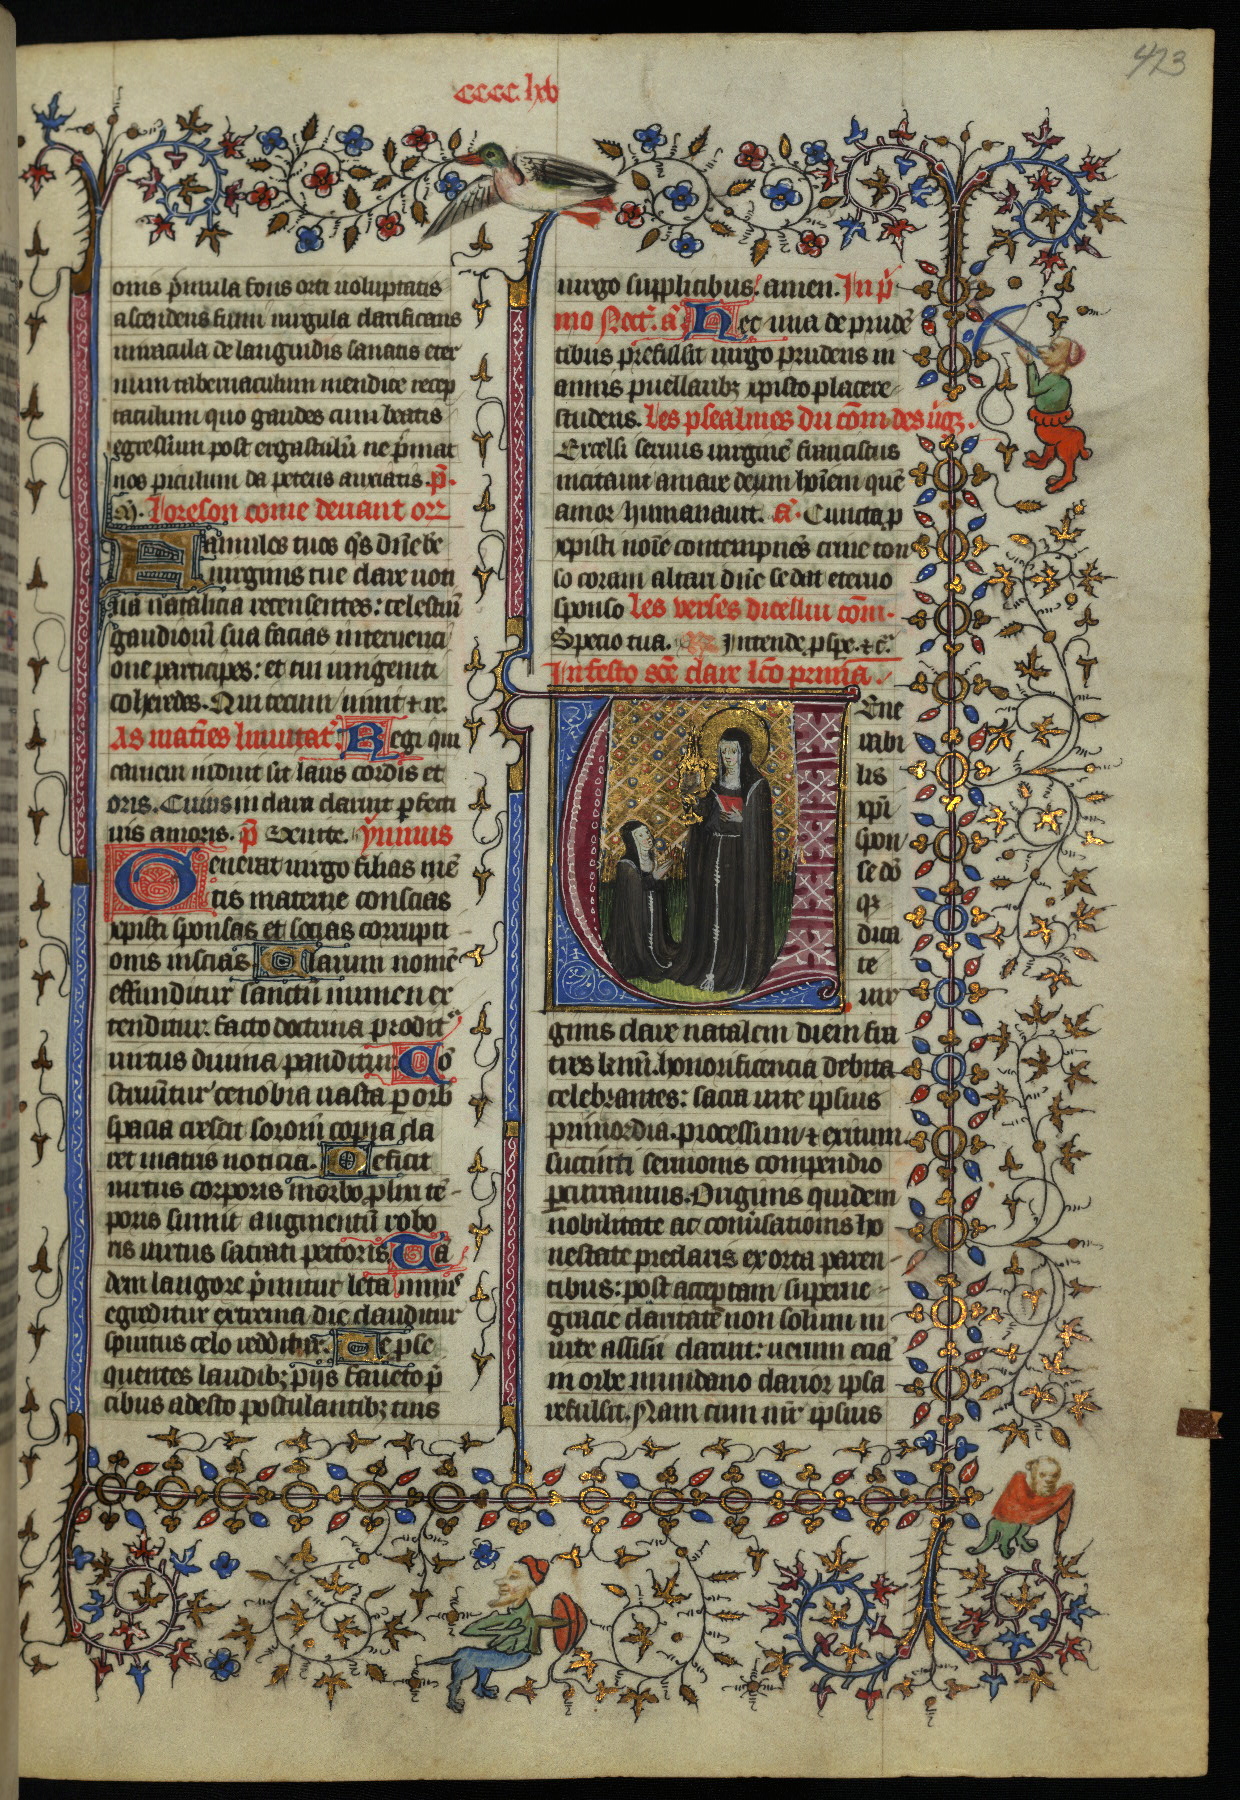 423
cccc. lxv
onis p̄mula fons orti uoluptatis
ascendens fumi uirgula clarificans
inmacula de languidis sanatis eter
num tabernaculum mendice recep
taculum quo gaudes cum beatis
egressum post ergastulū ne p̄mat
nos piculum da petens anxiatis. p̄.
Loreson come deuant or
Famulos tuos q̄s dn̄e be
uirginis tue clare uoti
ua natalicia recensentes: celestiū
gaudiorū sua facias interuenci
one participes: et tui unigeniti
coheredes. Qui tecum uiuit et re.
As matīes Inuitat. Regi qui
carnem induit sit laus cordis et
oris. Cuius in clara claruit p̄fecti
uis amoris. p̄ Venite. ymnus
Generat uirgo filias mē
tis materne conscias
xpisti sponsas et socias corrupti
onis inscias Clarum nomē
effunditur sanctū munen ex
tenditur. facto doctrina prodit
uirtus diuina panditur. Cō
struūtur cenobia uasta p orb
spacia crescit sororū copia cla
ret matris noticia. Deficit
uirtus corporis morbo plixi tē-
poris sumit augmentū robo
ris uirtus sacrati pectoris. Tā
dem langore p̄mitur leta
egreditur extrema die clauditur
spiritus celo redditur. Te pse
quentes laudibꝫ pijs faueto p̄
cibus adesto postulantibꝫ tuis
uirgo supplicibus. amen. In p̄
mo Noct. a᷒ Hec una de prudē
tibus prefulsit uirgo prudens in
annis puellaribꝫ xpisto placere
studens. Les psealmes du cōm des ūgꝫ.
Excelsi seruus uirginē franciscus
incitauit amare deum hoīem quē
amor humanauit. a᷒. Cuncta p
xpisti noīe contempnēs crine ton
so coram altari dn̄e se dat eterno
sponso Les verses dicellui cōm.
Specio tua. Intende pspe. et c.
In festo scē clare lc̄o prima.
Uene
rabi
lis
xpī
spon
se dō
qꝫ
dica
te
uir
ginis clare natalem diem fra
tres k̄mi. honorificencia debita
celebrantes: sacra uite ipsius
primordia. processum et exitum
succincti sermonis compendio
percurramus. Uirginis quidem
nobilitate ac conūsationis ho
nestate preclaris exorta paren
tibus: post acceptam superne
gracie claritatē non solum in
urbe assisii claruit: uerum eciā
in orbe mundano clarior ipsa
refulsit. Nam cum mr̄ ipsius